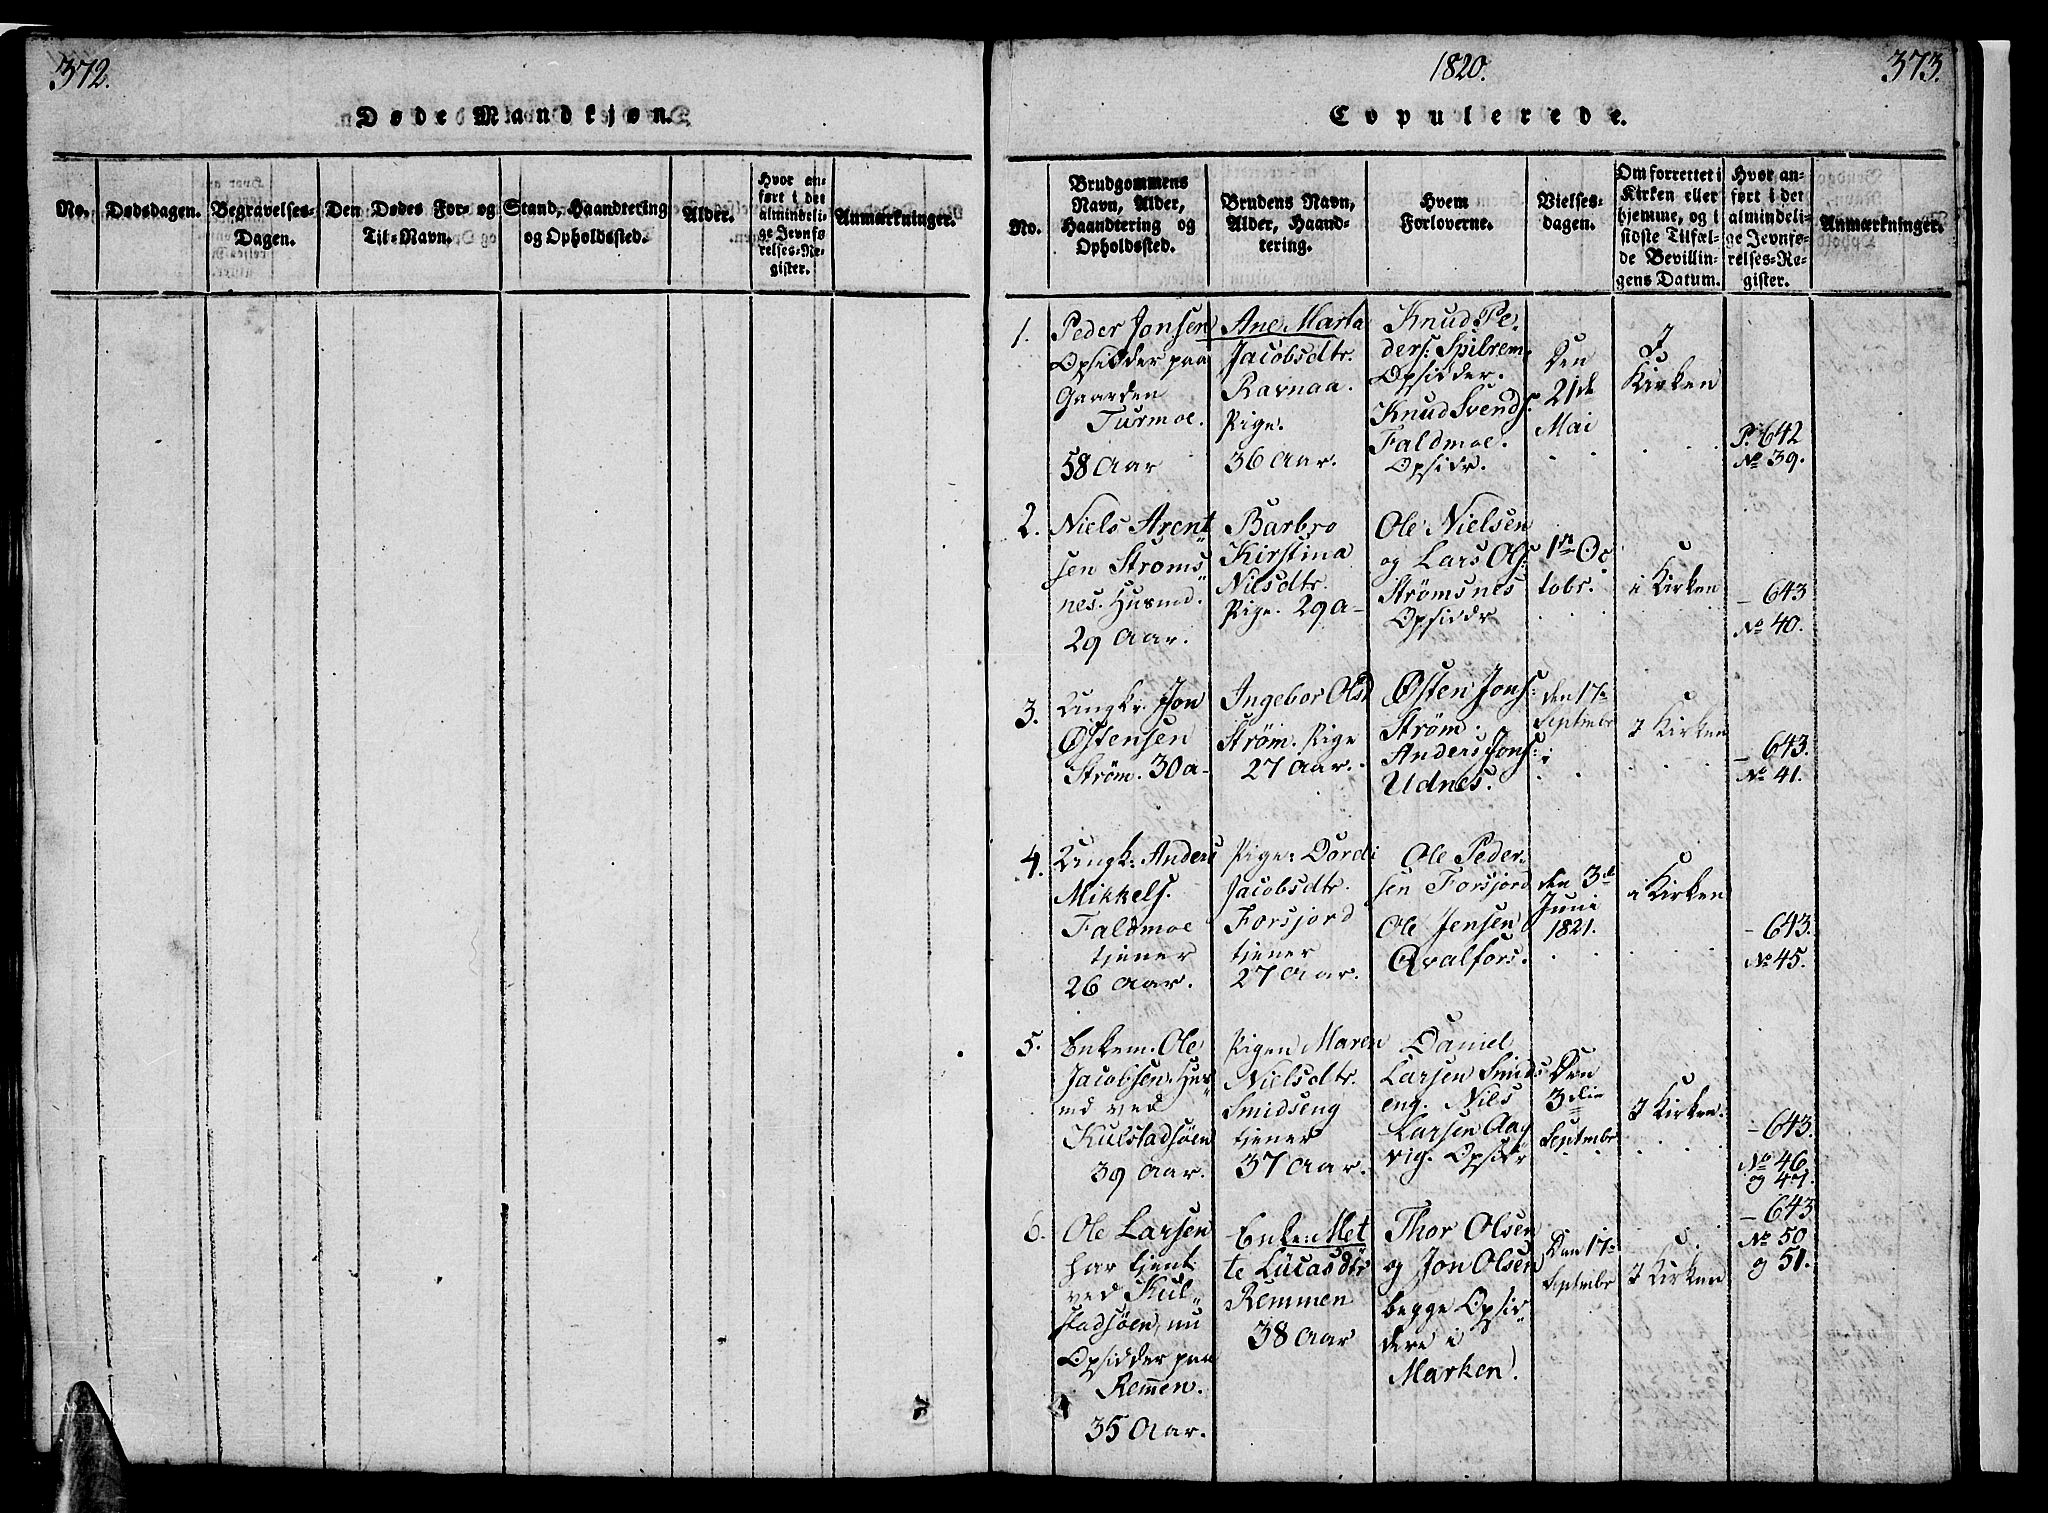 372.
Døde Mandkjøn.
No.
Dødsdagen.
Begravelses-
Dagen.
Den Dødes For- og
Til-Navn.
Stand, Haandtering
og Opholdssted.
Alder.
Hvor an-
ført i det
almindeli-
ge Jevnfø-
relses-Re-
gister.
Anmærkninger.
1820.
373.
Copulerede.
No.
Brudgommens
Navn, Alder,
Haandtering og
Opholdssted.
Brudens Navn,
Alder, Haand-
tering.
Hvem
Forloverne.
Vielses-
dagen.
Om forrettet i
Kirken eller
hjemme, og i
sidste Tilfæl-
de Bevillin-
gens Datum.
Hvor an-
ført i det
almindeli-
ge Jevnfø-
relses-Re-
gister.
Anmærkninger.
1.
Peder Jonsen
Opsidder paa
Gaarden
Turmoe.
58 Aar
Ane Marta
Jacobsdtr.
Ravnaa.
Pige.
36 Aar.
Knud Pe-
ders: Spilrem.
Opsidder.
Knud Svends.
Faldmoe.
Opsidr.
Den
21de
Mai
I
Kirken
P. 642
No 39.
2.
Niels Arent
sen Strøms
nes. Husmd.
29 Aar.
Barbro
Kirstina
Nilsdtr.
Pige. 29 a-
Ole Nielsen
og Lars Ols.
Strømsnes
Opsiddr
1n Oc
tobr.
i Kirken
- 643
No 40.
3.
Ungk. Jon
Østensen
Strøm. 30 a-
Ingebor Olsd
Strøm. Pige
27 Aar.
Østen Jons:
Strøm.
Anders Jons:
Udnes.
den 17n
Septmbr
i
I Kirken
- 643.
No 41.
4.
Ungk: Anders
Mikkels.
Faldmoe
tjener
26 Aar.
Pige: Dordi
Jacobsdtr.
Forsjord
tjener
27 Aar.
Ole Peder-
sen Forsjord
Ole Jensen
Qvalfors.
den 3de
Juni
1821.
i Kirken
- 643.
No 45.
5.
Enkem. Ole
Jacobsen. Hus
md ved
Kulstadsøen
39 Aar.
Pigen Maren
Nielsdtr.
Smidseng
tjener
37 Aar.
Daniel
Larsen Smids
eng. Nils
Larsen Aag
vig. Opsidr
Den
3die
Septmbr
I Kirken.
- 643.
No 46
og 47.
6.
Ole Larsen
har tjent
ved Kul-
stadsøen, nu
Opsidder paa
Remen.
35 Aar.
Enke: Met
te Lucasdtr
Remmen
38 Aar
Thor Olsen
og Jon Olsen
begge Opsid-
dere i
Marken.
Den 17n
Septmbr
I Kirken
- 643
No 50
og 51.